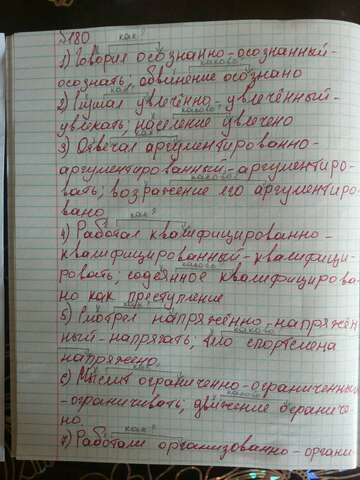 §180 как?
1) Говорил осознанно-осознанный-
каково?
осознать; обвинение осознано
как? каково?
2) Слушал увлечённо-увлечённый-
увлекать; население увлечено
как?
3) Отвечал аргументированно-
аргументированный-аргументиро-
каково?
вать; возражение его аргументиро-
вано
как?
4) Работал квалифицированно-
квалифицированный-квалифици-
каково?
ровать; содеянное квалифицирова-
но как преступление
как?
5) Смотрел напряжённо-напряжён
каково?
ный-напрягать; тело спортсмена
напряжено.
как?
6) Мыслит ограниченно-ограниченный
каково?
-ограничивать; движение ограниче-
но.
как?
7) Работали организованно-органи